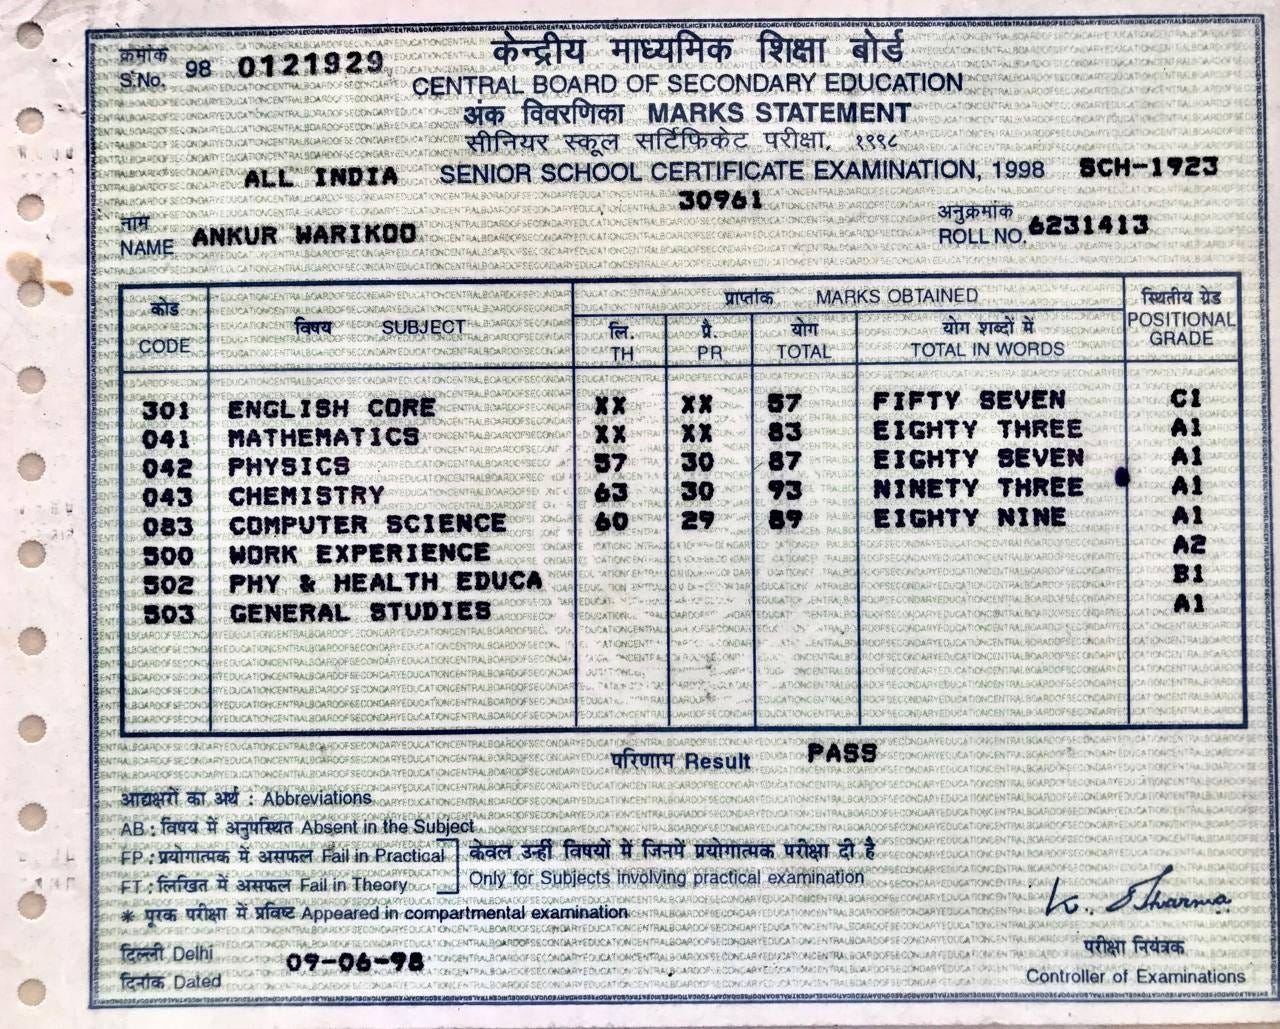 क्रमांक
S.No. 98 0121929
केन्द्रीय माध्यमिक शिक्षा बोर्ड
CENTRAL BOARD OF SECONDARY EDUCATION
अंक विवरणिका MARKS STATEMENT
सीनियर स्कूल सर्टिफिकेट परीक्षा, १९९८
ALL INDIA SENIOR SCHOOL CERTIFICATE EXAMINATION, 1998 SCH-1923
30961
नाम
NAME ANKUR WARIKOO
अनुक्रमांक
ROLL NO. 6231413
कोड
CODE
विषय SUBJECT
प्राप्तांक MARKS OBTAINED
लि.
TH
प्रै.
PR
योग
TOTAL
योग शब्दों में
TOTAL IN WORDS
स्थितीय ग्रेड
POSITIONAL
GRADE
301 ENGLISH CORE XX XX 57 FIFTY SEVEN C1
041 MATHEMATICS XX XX 83 EIGHTY THREE A1
042 PHYSICS 57 30 87 EIGHTY SEVEN A1
043 CHEMISTRY 63 30 93 NINETY THREE A1
083 COMPUTER SCIENCE 60 29 89 EIGHTY NINE A1
500 WORK EXPERIENCE A2
502 PHY & HEALTH EDUCA B1
503 GENERAL STUDIES A1
परिणाम Result PASS
आद्यक्षरों का अर्थ : Abbreviations
AB : विषय में अनुपस्थित Absent in the Subject
FP : प्रयोगात्मक में असफल Fail in Practical
FT : लिखित में असफल Fail in Theory
केवल उन्हीं विषयों में जिनमें प्रयोगात्मक परीक्षा दी है
Only for Subjects involving practical examination
* पूरक परीक्षा में प्रविष्ट Appeared in compartmental examination
दिल्ली Delhi
दिनांक Dated 09-06-98
K. Sharma
परीक्षा नियंत्रक
Controller of Examinations